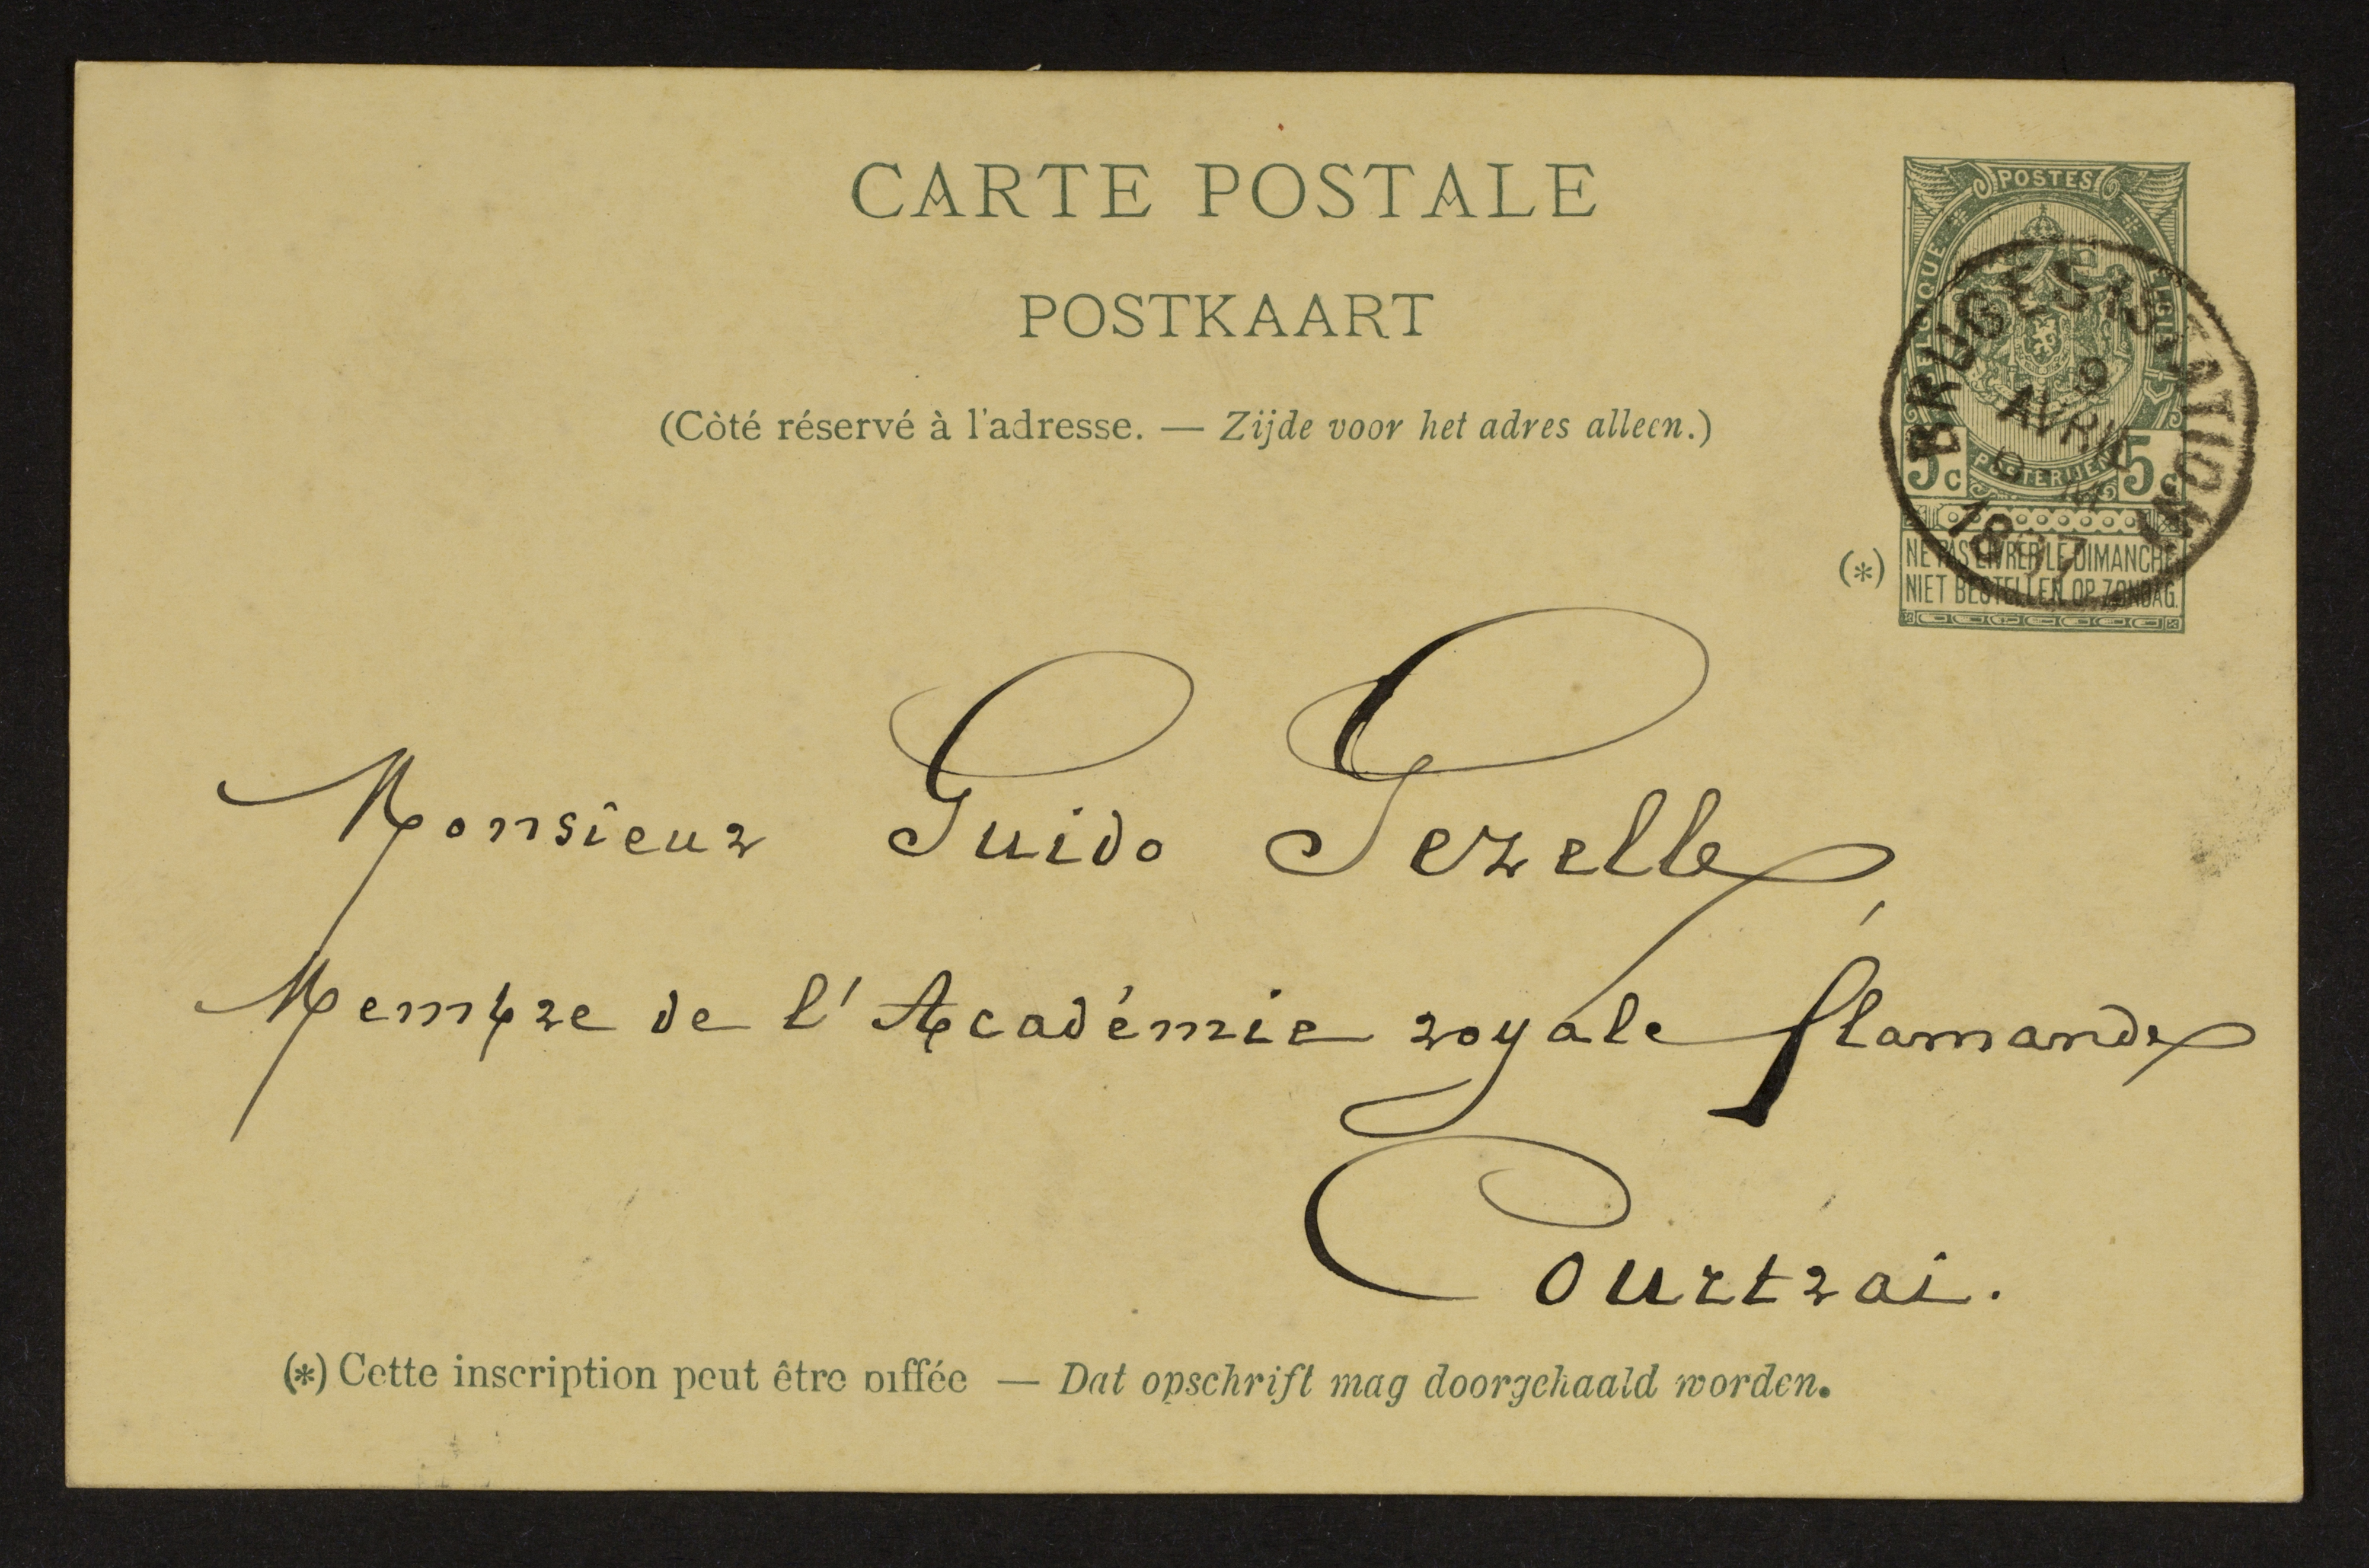 CARTE POSTALE
POSTKAART
(Côté réservé à l'adresse. — Zijde voor het adres alleen.)
POSTES
BELGIQUE BELGIE
POSTERIJEN
5 c 5 c
BRUGES (STATION)
9
AVRIL
1897
(*)
NE PAS LIVRER LE DIMANCHE
NIET BESTELLEN OP ZONDAG.
Monsieur Guido Gezelle,
Membre de l'Académie royale flamande
Courtrai.
(*) Cette inscription peut être biffée — Dat opschrift mag doorgehaald worden.